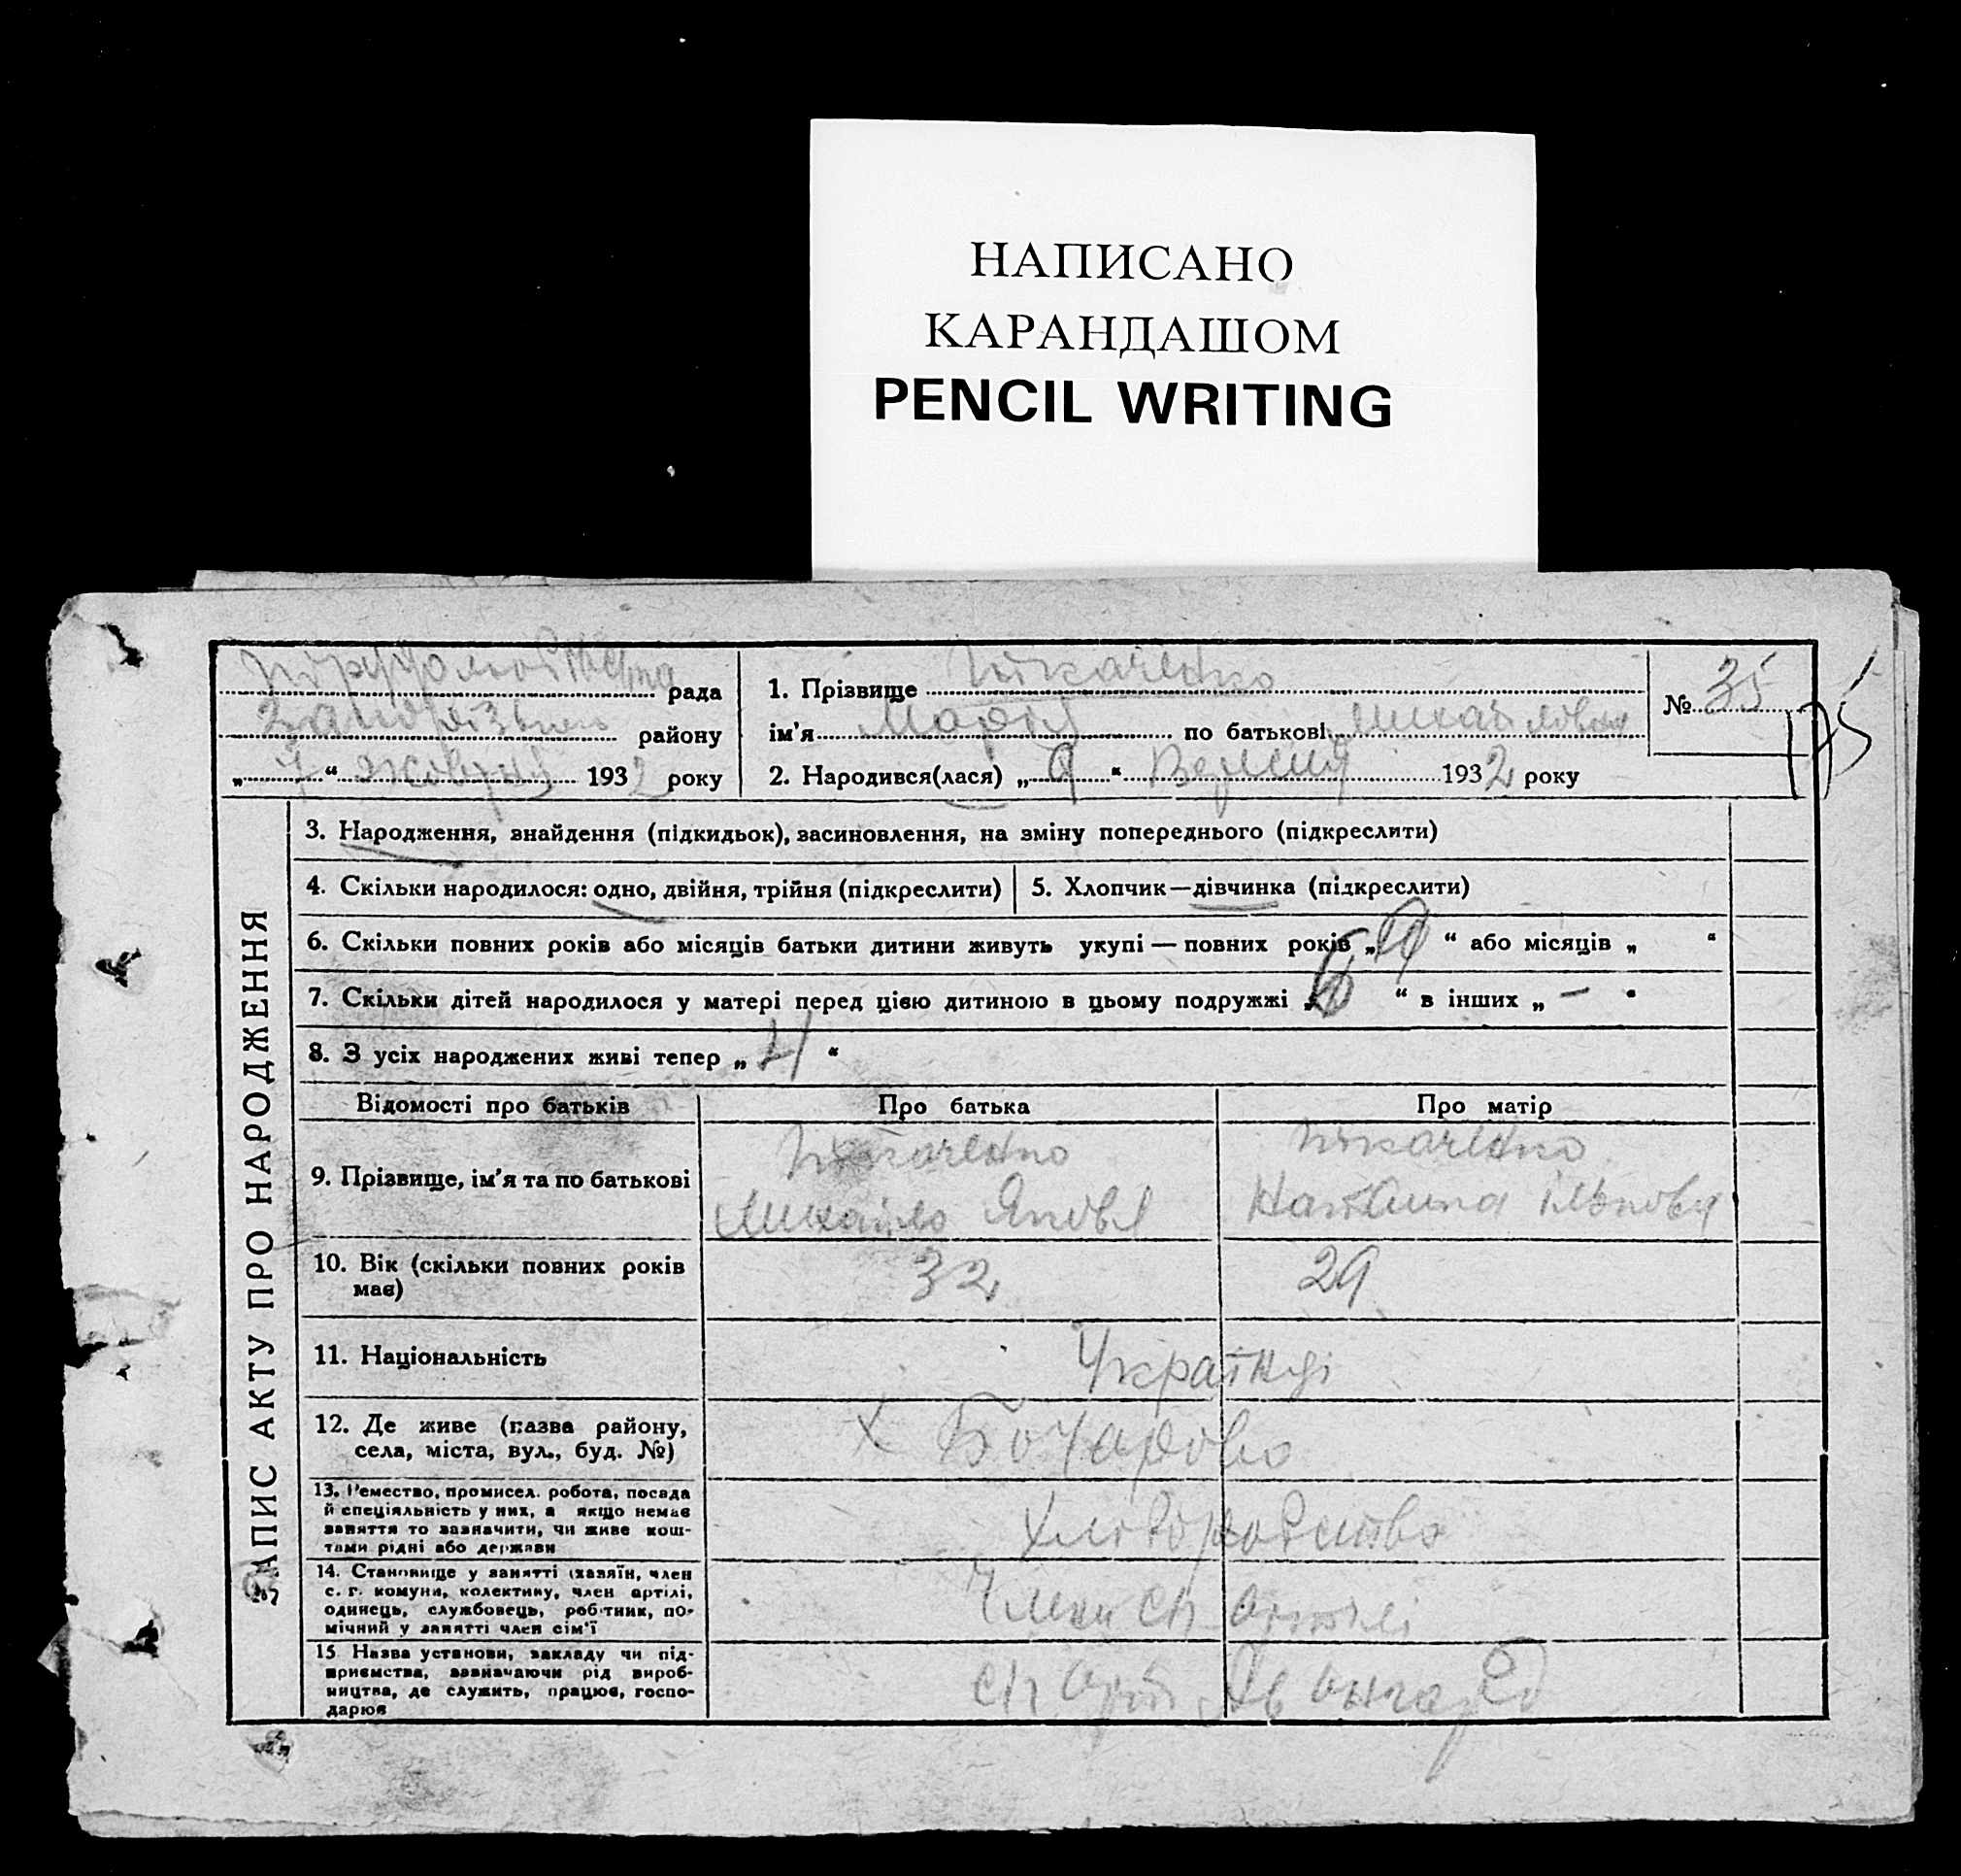 НАПИСАНО
КАРАНДАШОМ
PENCIL WRITING
рада
району
„ 7 “ жовтня 1932 року
1. Прізвище
ім'я Марія по батькові Михайловна
2. Народився(лася) „ 9 “ 1932 року
№ 35
175
ЗАПИС АКТУ ПРО НАРОДЖЕННЯ
3. Народження, знайдення (підкидьок), засиновлення, на зміну попереднього (підкреслити)
4. Скільки народилося: одно, двійня, трійня (підкреслити)
5. Хлопчик—дівчинка (підкреслити)
6. Скільки повних років або місяців батьки дитини живуть укупі — повних років „ “ або місяців „ “
7. Скільки дітей народилося у матері перед цією дитиною в цьому подружжі „ “ в інших „ — “
8. З усіх народжених живі тепер „ 4 “
Відомості про батьків
Про батька
Про матір
9. Прізвище, ім'я та по батькові
Михайло Яковл
10. Вік (скільки повних років
має)
32
29
11. Національність
Українці
12. Де живе (назва району,
села, міста, вул., буд. №)
х Бочарово
13. Ремество, промисел. робота, посада
й спеціяльність у них, а якщо немає
заняття то зазначити, чи живе кош-
тами рідні або держави
Хліборобство
14. Становище у занятті (хазяїн, член
с. г. комуни, колективу, член артілі,
одинець, службовець, робітник, по-
мічний у занятті член сім'ї
Член сп артілі
15 Назва установи, закладу чи під-
приємства, зазначаючи рід вироб-
ництва, де служить, працює, госпо-
дарює
Авангард